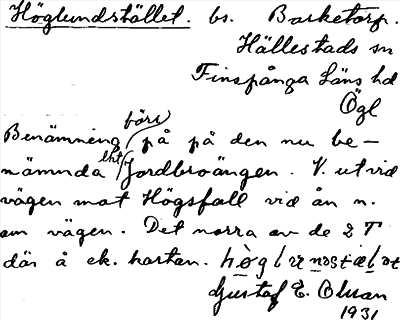 Höglundstället. bs. Borketorp.
Hällestads sn
Finspånga Läns hd
Ögl
Benämning förr på på den nu be-
nämnda lht Jordbroängen. V. ut vid
vägen mot Högsfall vid ån n.
om vägen. Det norra av de 2 T
där å ek. kartan.
Gustaf E. Olsson
1931